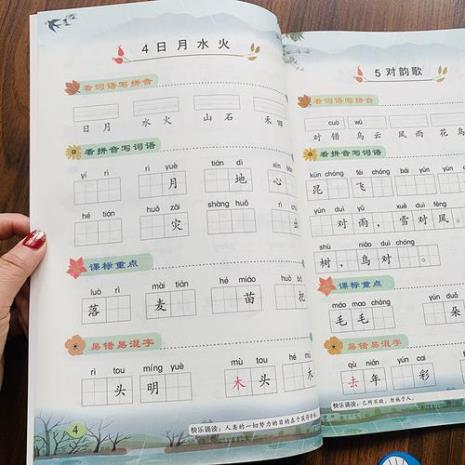 4 日 月 水 火
看词语写拼音
日 月 水 火 山 石 禾
看拼音写词语
yí rì rì yuè tián dì xīn
月 地 心
hé tián huǒ zāi shàng huǒ
灾
课标重点
luò rì mài tián hé miáo huā
落 麦 苗 花
易错易混字
rì tou míng yuè mù tou
头 明 木 头
4
快乐诵读：人类的一切努力的目的在于获得
5 对韵歌
看词语写拼音
cuò wū
对 错 乌 云 风 雨 花 鸟
看拼音写词语
kūn chóng fēi yún yún
昆 飞
yún duì yǔ xuě duì fēng
对 雨， 雪 对 风
shù niǎo duì chóng
树， 鸟 对
课标重点
máo mao chóng yún duǒ
毛 毛 朵
易错易混字
qù nián yún cai
去 年 彩
快乐诵读：己所不欲，勿施于人。